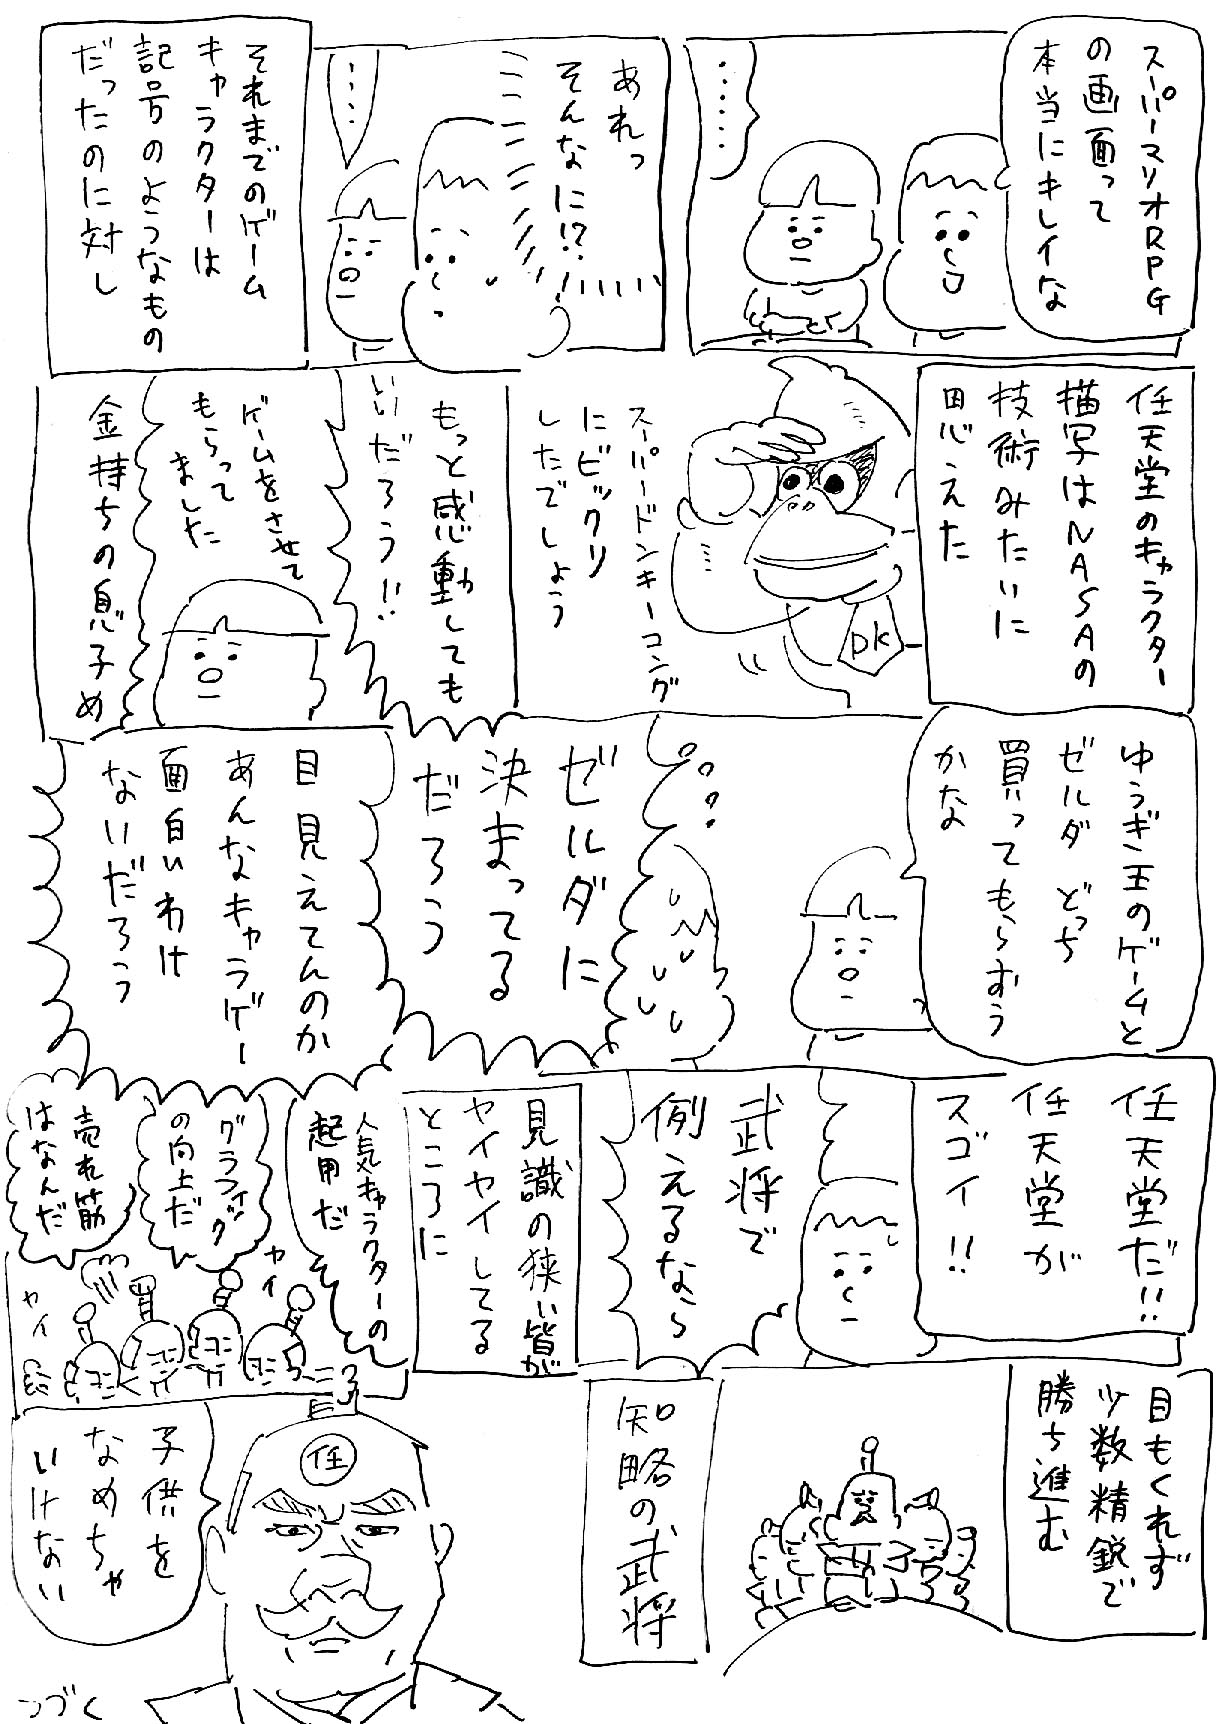 スーパーマリオRPG
の画面って
本当にキレイな
……
あれっ
そんなに!?
……
それまでのゲーム
キャラクターは
記号のようなもの
だったのに対し
任天堂のキャラクター
描写はNASAの
技術みたいに
思えた
DK
スーパードンキーコング
にビックリ
したでしょう
もっと感動しても
いいだろう!!
ゲームをさせて
もらって
ました
金持ちの息子め
ゆうぎ王のゲームと
ゼルダ どっち
買ってもらおう
かな
ゼルダに
決まってる
だろう
目見えてんのか
あんなキャラゲー
面白いわけ
ないだろう
任天堂だ!!
任天堂が
スゴイ!!
武将で
例えるなら
見識の狭い皆が
ヤイヤイしてる
ところに
人気キャラクターの
起用だ
グラフィック
の向上だ
売れ筋
はなんだ
ヤイ
ヤイ
目もくれず
少数精鋭で
勝ち進む
知略の武将
任
子供を
なめちゃ
いけない
つづく